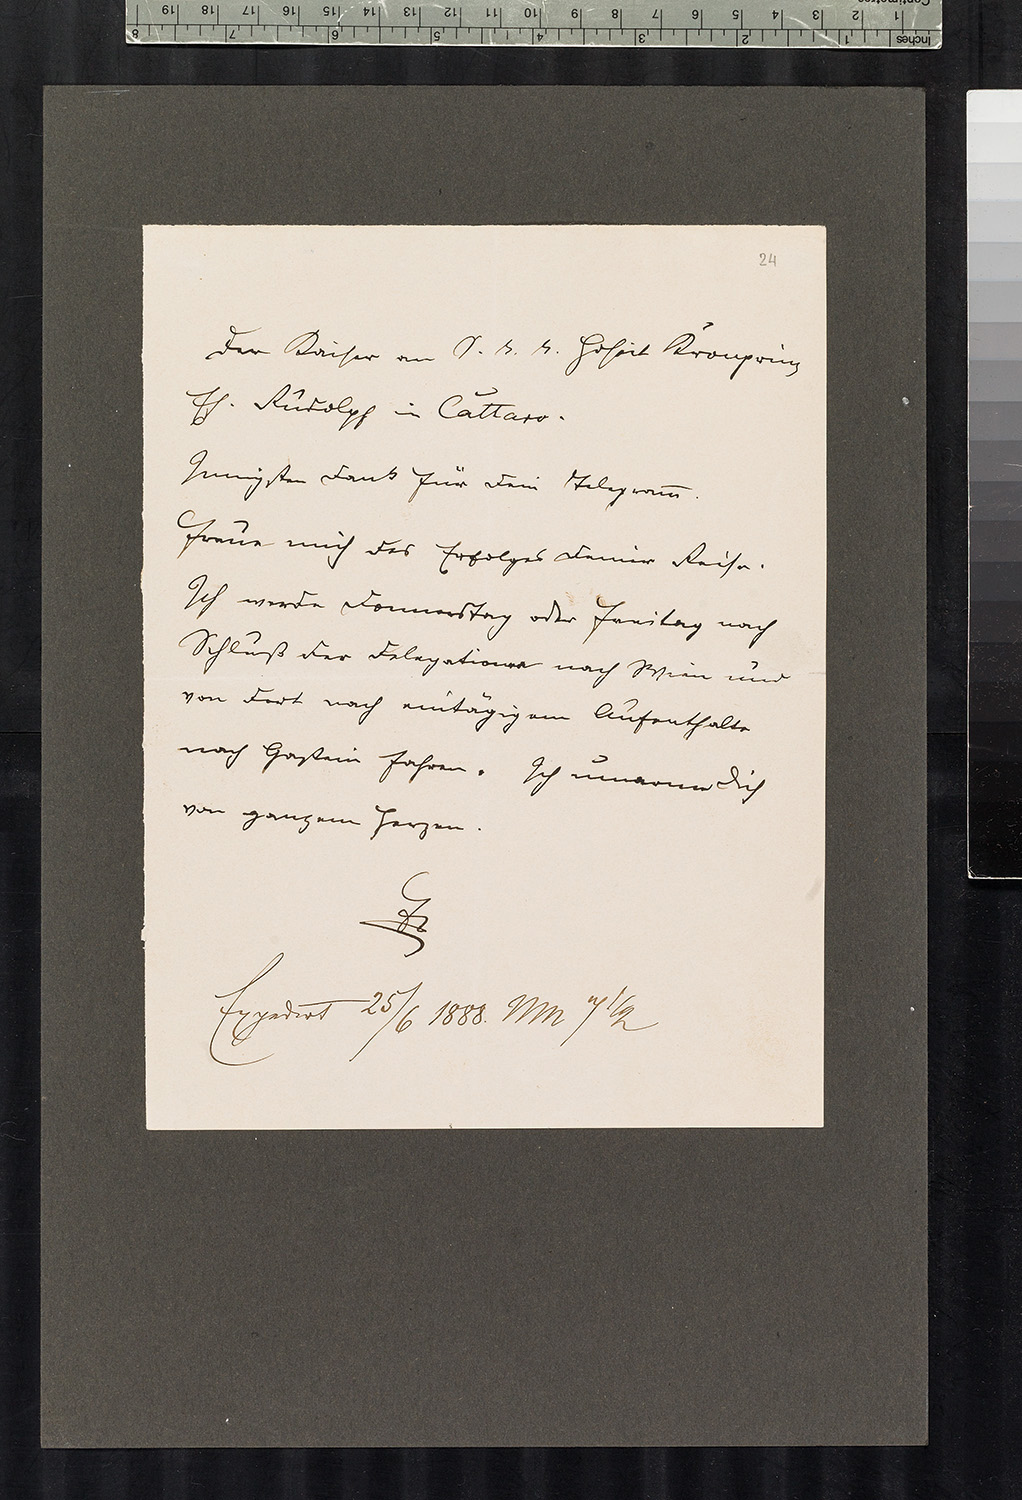 Centimetres
1 2 3 4 5 6 7 8 9 10 11 12 13 14 15 16 17 18 19
Inches 1 2 3 4 5 6 7 8
24
Der Kaiser an S. k. k. Hoheit Kronprinz
Eh. Rudolph in Cattaro.
Innigsten Dank für Dein Telegram̅.
Freue mich des Erfolges Deiner Reise.
Ich werde Donnerstag oder Freitag nach
Schluß der Delegationen nach Wien und
von dort nach eintägigem Aufenthalte
nach Gastein fahren. Ich umarme Dich
von ganzem Herzen.
Expedirt 25/6 1888.